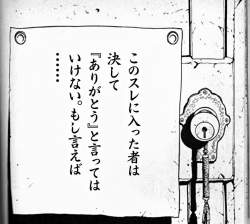 このスレに入った者は
決して
『ありがとう』と言っては
いけない。もし言えば
………